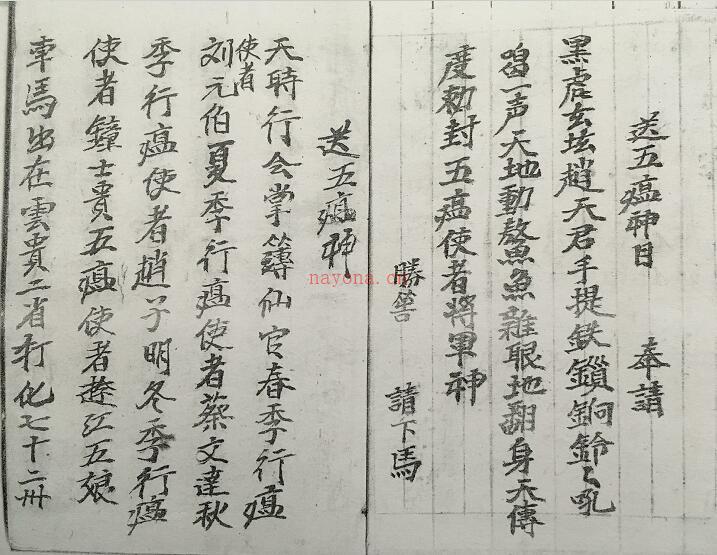 送五瘟神目 奉請
黑虎玄坛趙天君手提鉄鎖銅鈴々吼
喝一声天地動鰲魚雜眼地翻身天傳
度勅封五瘟使者將軍神
勝筶 請下馬
送五瘟神
天時行会掌簿仙官春季行瘟
使者
刘元伯夏季行瘟使者蔡文達秋
季行瘟使者趙子明冬季行瘟
使者鐘士貴五瘟使者遊江五娘
車馬出在雲貴二省打化七十二州
nayona.cn